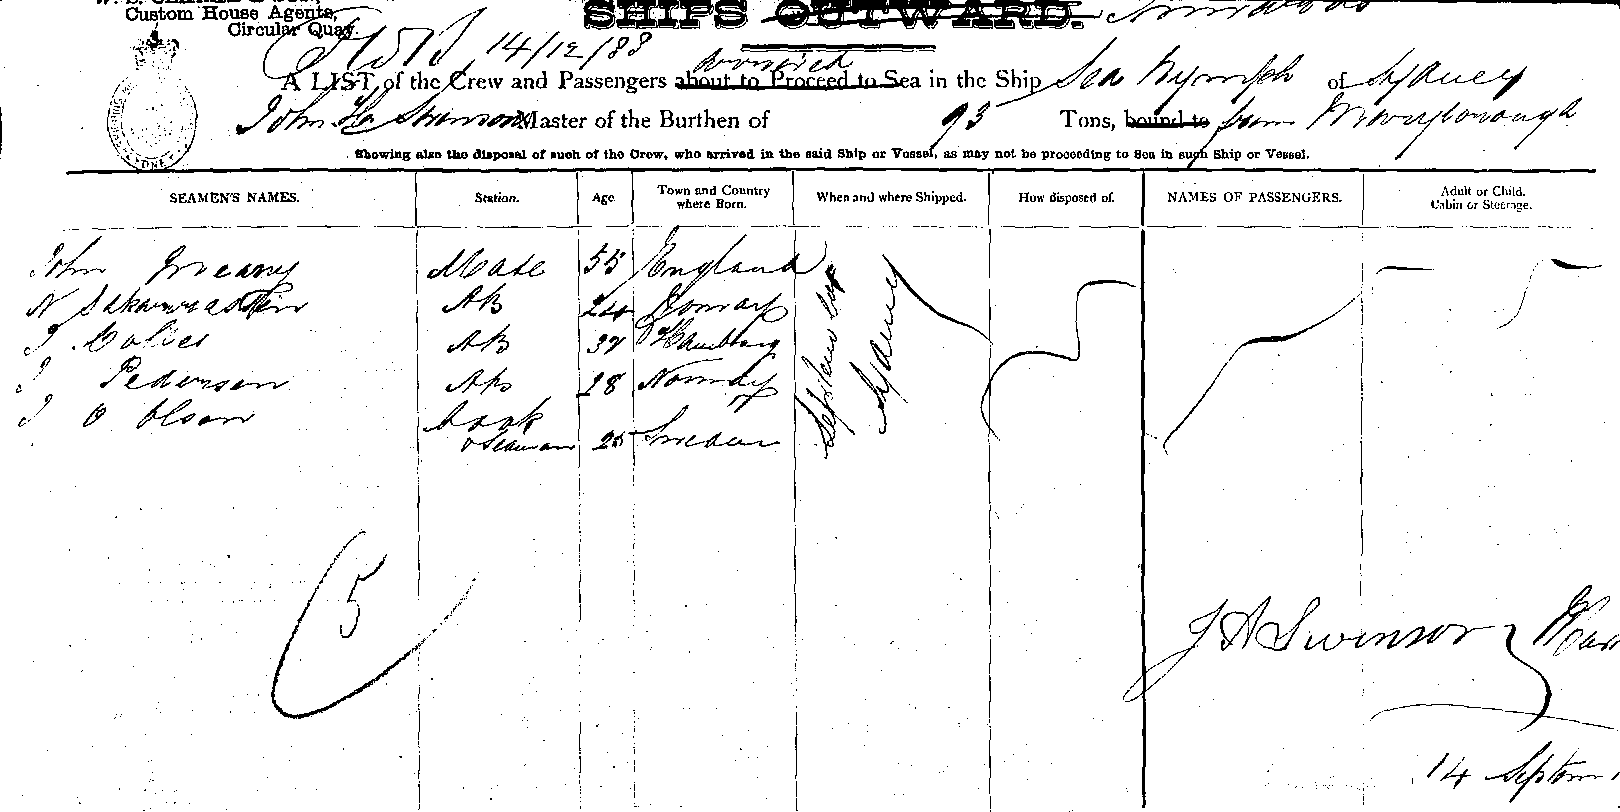 Custom House Agents,
Circular Quay.
SHIPS OUTWARD.
14/12/88
arrived
A LIST of the Crew and Passengers about to Proceed to Sea in the Ship Sea Nymph of Sydney
John H Swanson Master of the Burthen of 93 Tons, bound to from Maryborough
Showing also the disposal of such of the Crew, who arrived in the said Ship or Vessel, as may not be proceeding to Sea in such Ship or Vessel.
SEAMEN'S NAMES. Station. Age Town and Country where Born. When and where Shipped. How disposed of. NAMES OF PASSENGERS. Adult or Child. Cabin or Steerage.
John Mate 55 England
N AB 24 Norway
J AB 37 Hamburg
J Pedersen AB 28 Norway
J O Olson Cook
& Seaman 25 Sweden
Sydney
5
J H Swenson
14 Septem